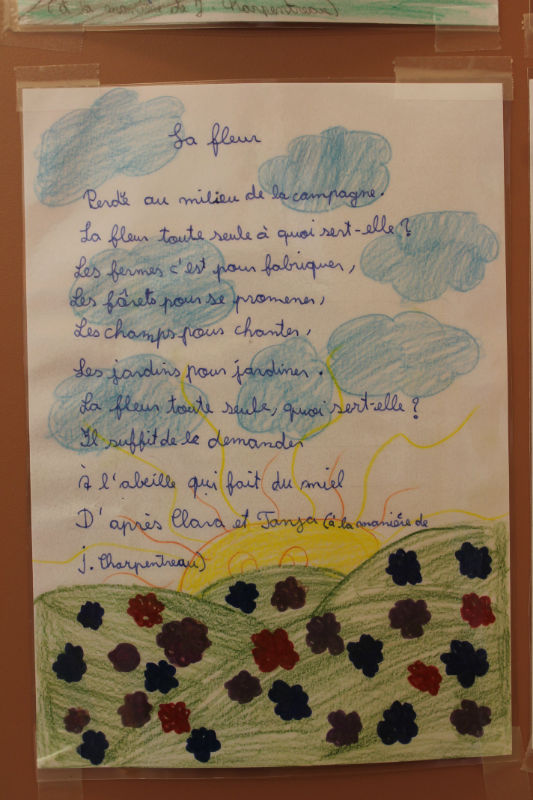 (à la manière de J. Charpentreau)
La fleur
Perdue au milieu de la campagne.
La fleur toute seule à quoi sert-elle ?
Les fermes c'est pour fabriquer,
Les fôrets pour se promener,
Les champs pour chanter,
Les jardins pour jardiner.
La fleur toute seule, quoi sert-elle ?
Il suffit de le demander
À l'abeille qui fait du miel
D'après Clara et Tanja (à la manière de
J. Charpentreau)